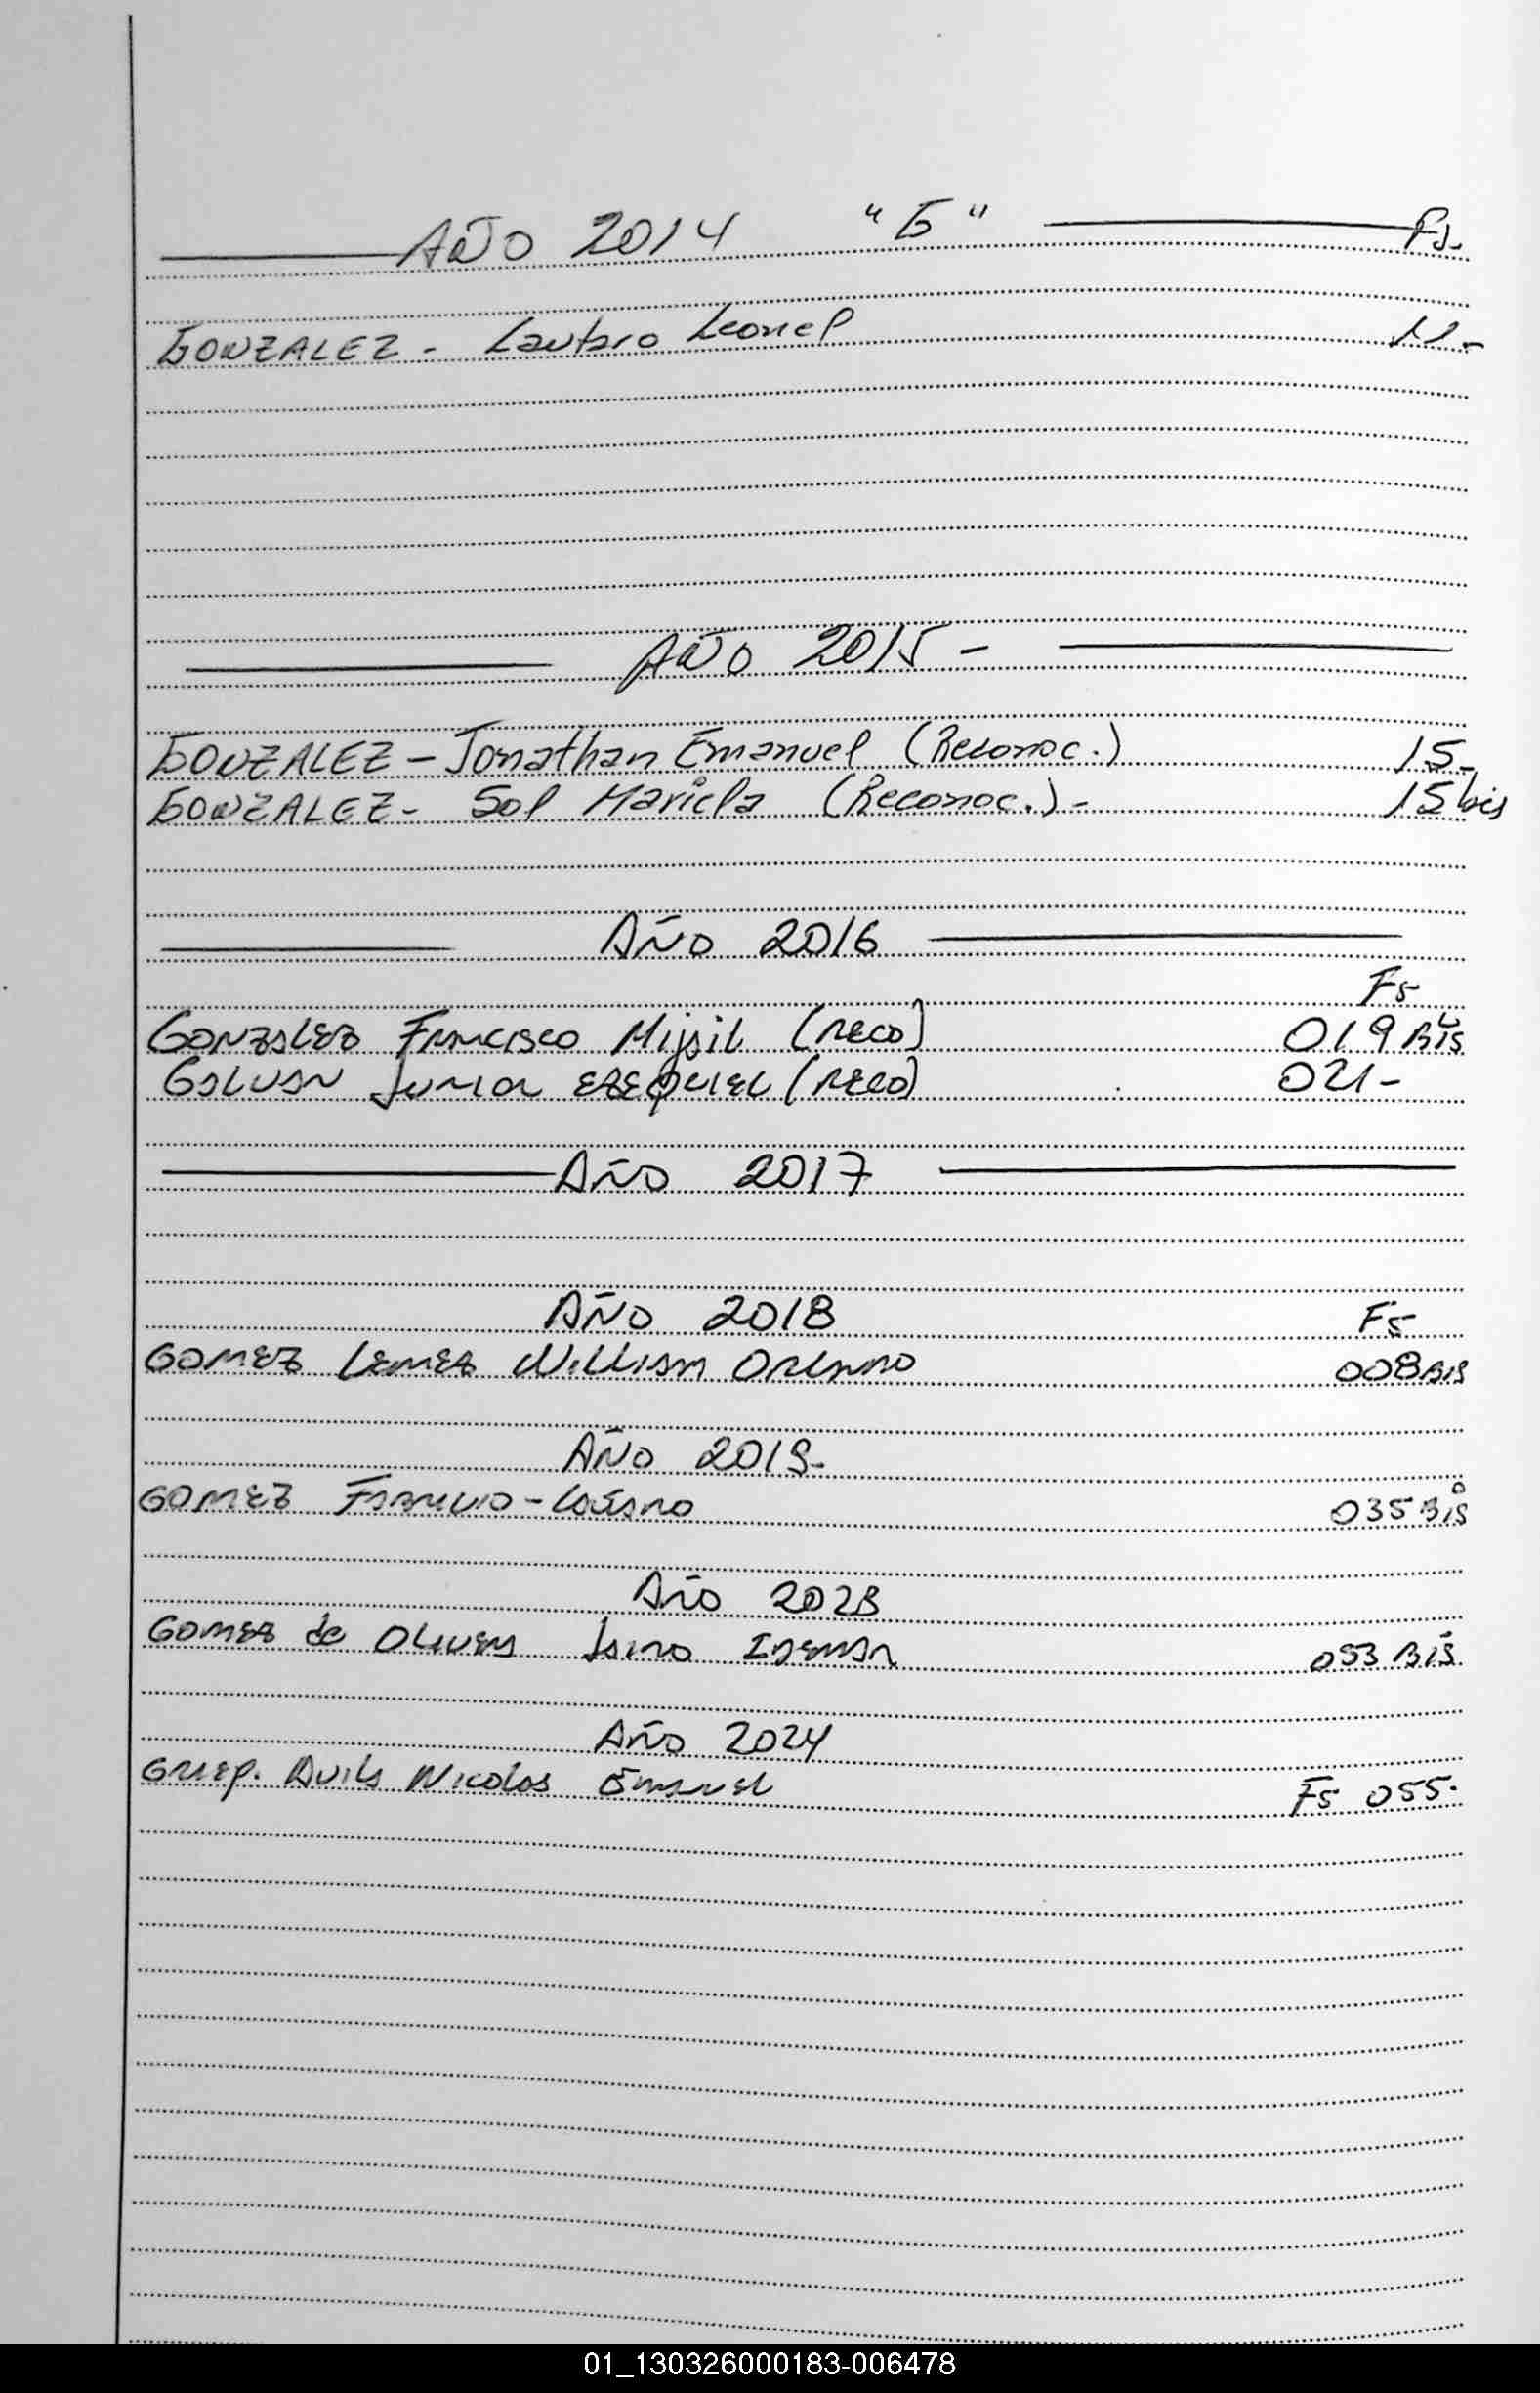 AÑO 2014 "G" Fs.
GONZALEZ - Lautaro Leonel 11.-
AÑO 2015 -
GONZALEZ - Jonathan Emanuel (Reconoc.) 15.-
GONZALEZ - Sol Mariela (Reconoc.) - 15 bis
AÑO 2016
Fs
GONZALEZ FRANCISCO Mijail (RECO) 019 Bis
GALVAN JUNIOR EZEQUIEL (RECO) 021-
AÑO 2017
AÑO 2018 Fs
GOMEZ LEMEZ WILLIAM ORLANDO 008 BIS
AÑO 2019-
GOMEZ FABRICIO - 035 Bis
Año 2023
GOMEZ de OLIVERA 053 Bis
Año 2024
Avila Nicolas Emanuel Fs 055.
01_130326000183-006478